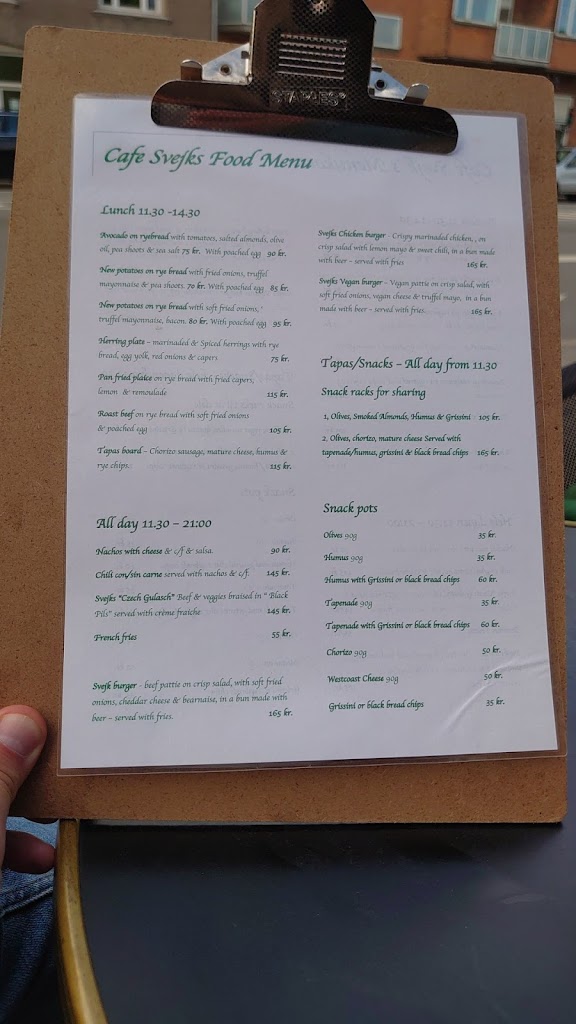 STAPLES
Cafe Svejks Food Menu
Lunch 11.30 -14.30
Avocado on ryebread with tomatoes, salted almonds, olive
oil, pea shoots & sea salt 75 kr. With poached egg 90 kr.
New potatoes on rye bread with fried onions, truffel
mayonnaise & pea shoots. 70 kr. With poached egg 85 kr.
New potatoes on rye bread with soft fried onions,
truffel mayonnaise, bacon. 80 kr. With poached egg 95 kr.
Herring plate – marinaded & Spiced herrings with rye
bread, egg yolk, red onions & capers 75 kr.
Pan fried plaice on rye bread with fried capers,
lemon & remoulade 115 kr.
Roast beef on rye bread with soft fried onions
& poached egg 105 kr.
Tapas board – Chorizo sausage, mature cheese, humus &
rye chips. 115 kr.
All day 11.30 – 21:00
Nachos with cheese & c/f & salsa. 90 kr.
Chili con/sin carne served with nachos & c/f. 145 kr.
Svejks "Czech Gulasch" Beef & veggies braised in " Black
Pils" served with crème fraiche 145 kr.
French fries 55 kr.
Svejk burger – beef pattie on crisp salad, with soft fried
onions, cheddar cheese & bearnaise, in a bun made with
beer – served with fries. 165 kr.
Svejks Chicken burger – Crispy marinaded chicken, , on
crisp salad with lemon mayo & sweet chili, in a bun made
with beer – served with fries 165 kr.
Svejks Vegan burger – Vegan pattie on crisp salad, with
soft fried onions, vegan cheese & truffel mayo, in a bun
made with beer – served with fries. 165 kr.
Tapas/Snacks – All day from 11.30
Snack racks for sharing
1, Olives, Smoked Almonds, Humus & Grissini 105 kr.
2. Olives, chorizo, mature cheese Served with
tapenade/humus, grissini & black bread chips 165 kr.
Snack pots
Olives 90g 35 kr.
Humus 90g 35 kr.
Humus with Grissini or black bread chips 60 kr.
Tapenade 90g 35 kr.
Tapenade with Grissini or black bread chips 60 kr.
Chorizo 90g 50 kr.
Westcoast Cheese 90g 50 kr.
Grissini or black bread chips 35 kr.